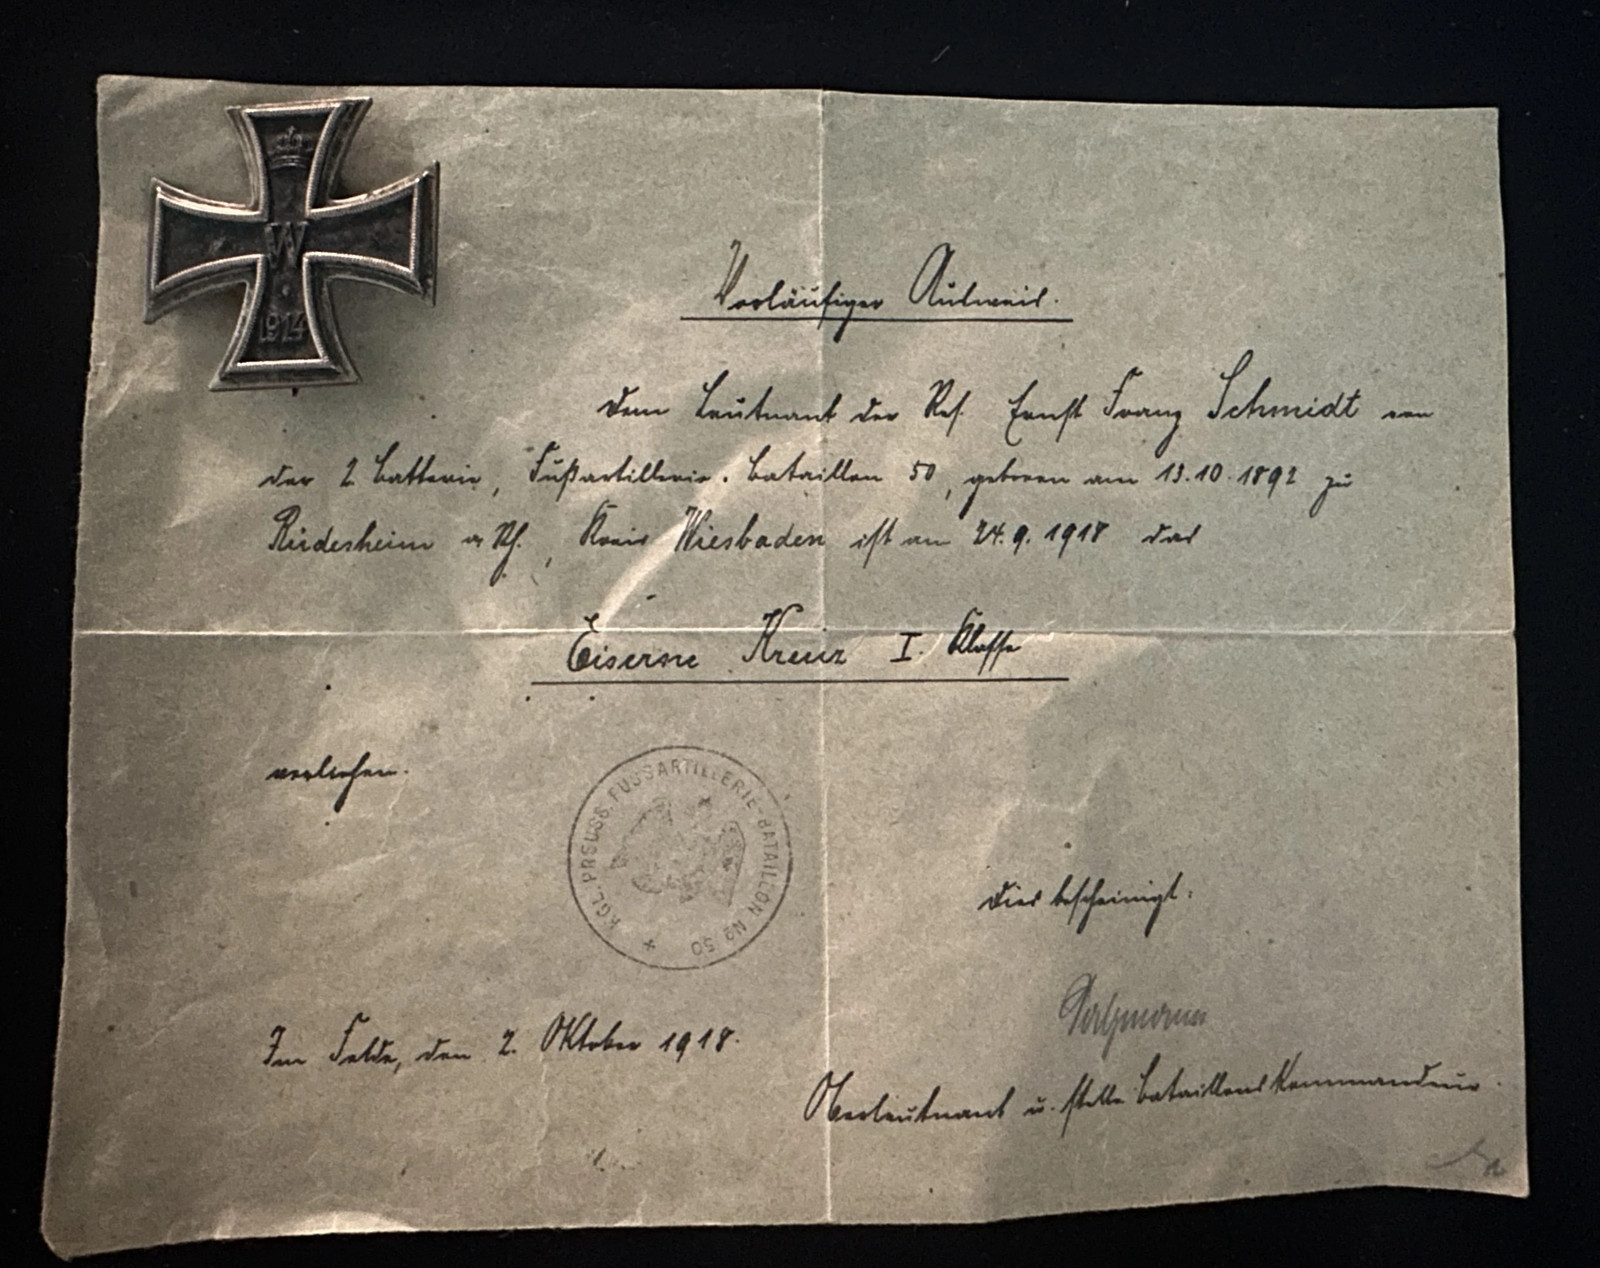 W
1914
Vorläufiger Ausweis.
Dem Leutnant der Res. Ernst Franz Schmidt von
der 2. Batterie, Fußartillerie-Bataillon 50, geboren am 13.10.1892 zu
Rüdesheim a. Rh., Kreis Wiesbaden ist am 24.9.1918 das
Eiserne Kreuz I. Klasse
verliehen.
KGL. PREUSS. FUSSARTILLERIE-BATAILLON No 50
Dies bescheinigt:
Im Felde, den 2. Oktober 1918.
Oberleutnant u. stellv. Bataillons Kommandeur.